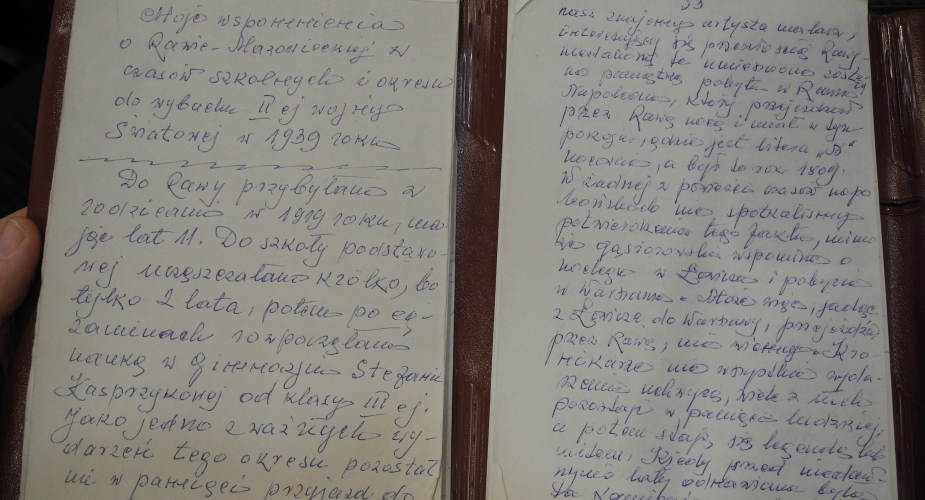 Moje wspomnienia
o Rawie-Mazowieckiej z
czasów szkolnych i okresu
do wybuchu II ej wojny
Światowej w 1939 roku
Do Rawy przybyłam z
rodzicami w 1919 roku, ma-
jąc lat 11. Do szkoły podstawo-
wej uczęszczałam krótko, bo
tylko 2 lata, potem po eg-
zaminach rozpoczęłam
naukę w Gimnazjum Stefanii
Kasprzykowej od klasy III ej.
Jako jedno z ważnych wy-
darzeń tego okresu pozostał
mi w pamięci przyjazd do
33
nasz znajomy artysta malarz,
interesujący się przeszłością Rawy,
na pamiątkę pobytu w Rawie
Napoleona, który przejeżdżał
przez Rawę nocą i miał w tym
pokoju, gdzie jest litera „N"
nocować, a był to rok 1809.
W żadnej z powieści czasów napo
leońskich nie spotkaliśmy
potwierdzenia tego faktu, mimo
że Gąsiorowski wspomina o
noclegu w Łowiczu i pobycie
w Warszawie. Może więc, jadąc
z Łowicza do Warszawy, przejeżdżał
przez Rawę, nie wiem. Kro-
nikarze nie wszystkie wyda-
rzenia uchwycą, wiele z nich
pozostaje w pamięci ludzkiej,
a potem staje się legendą lub
mitem. Kiedy przed